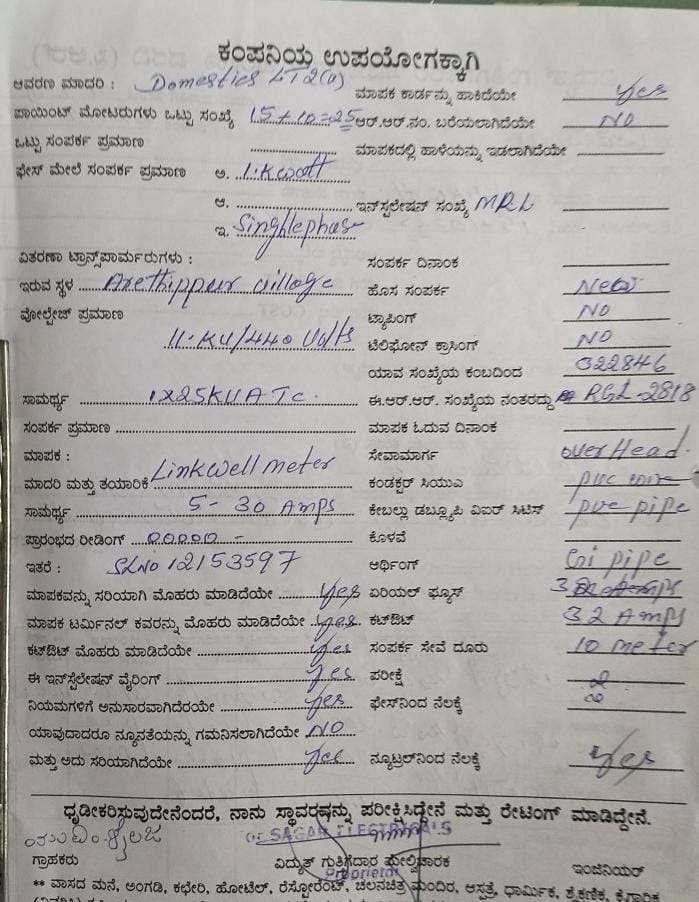 ಕಂಪನಿಯ ಉಪಯೋಗಕ್ಕಾಗಿ
ಆವರಣ ಮಾದರಿ : Domestics LT2(a) ಮಾಪಕ ಕಾರ್ಡನ್ನು ಹಾಕಿದೆಯೇ Yes
ಪಾಯಿಂಟ್ ಮೋಟರುಗಳು ಒಟ್ಟು ಸಂಖ್ಯೆ 15+10=25 ಆರ್.ಆರ್.ನಂ. ಬರೆಯಲಾಗಿದೆಯೇ NO
ಒಟ್ಟು ಸಂಪರ್ಕ ಪ್ರಮಾಣ ಮಾಪಕದಲ್ಲಿ ಹಾಳೆಯನ್ನು ಇಡಲಾಗಿದೆಯೇ
ಫೇಸ್ ಮೇಲೆ ಸಂಪರ್ಕ ಪ್ರಮಾಣ ಅ. 1.Kwatt
ಆ. ಇನ್‌ಸ್ಟಲೇಷನ್ ಸಂಖ್ಯೆ MRL
ಇ. Singhlephase
ವಿತರಣಾ ಟ್ರಾನ್ಸ್‌ಪಾರ್ಮರುಗಳು : ಸಂಪರ್ಕ ದಿನಾಂಕ
ಇರುವ ಸ್ಥಳ Arethippur village ಹೊಸ ಸಂಪರ್ಕ New
ವೋಲ್ಟೇಜ್ ಪ್ರಮಾಣ ಟ್ಯಾಪಿಂಗ್ NO
11.KV/440 Volts ಟೆಲಿಫೋನ್ ಕ್ರಾಸಿಂಗ್ NO
ಯಾವ ಸಂಖ್ಯೆಯ ಕಂಬದಿಂದ 322846
ಸಾಮರ್ಥ್ಯ 1x25KVA TC. ಈ.ಆರ್.ಆರ್. ಸಂಖ್ಯೆಯ ನಂತರದ್ದು RGL-2818
ಸಂಪರ್ಕ ಪ್ರಮಾಣ ಮಾಪಕ ಓದುವ ದಿನಾಂಕ
ಮಾಪಕ : ಸೇವಾಮಾರ್ಗ over Head
ಮಾದರಿ ಮತ್ತು ತಯಾರಿಕೆ Linkwell meter ಕಂಡಕ್ಟರ್ ಸಿಯುಎ pvc wire
ಸಾಮರ್ಥ್ಯ 5-30 Amps ಕೇಬಲ್ಲು ಡಬ್ಲ್ಯೂಪಿ ವಿಐರ್ ಸಿಟಿಸ್ pvc pipe
ಪ್ರಾರಂಭದ ರೀಡಿಂಗ್ 00000 - ಕೊಳವೆ
ಇತರೆ : SLNO 12153597 ಆರ್ಥಿಂಗ್ Gi pipe
ಮಾಪಕವನ್ನು ಸರಿಯಾಗಿ ಮೊಹರು ಮಾಡಿದೆಯೇ Yes ಏರಿಯಲ್ ಫ್ಯೂಸ್ 32 Amps
ಮಾಪಕ ಟರ್ಮಿನಲ್ ಕವರನ್ನು ಮೊಹರು ಮಾಡಿದೆಯೇ Yes. ಕಟ್‌ಔಟ್ 32 Amps
ಕಟ್‌ಔಟ್ ಮೊಹರು ಮಾಡಿದೆಯೇ Yes ಸಂಪರ್ಕ ಸೇವೆ ದೂರು 10 meter
ಈ ಇನ್‌ಸ್ಟೆಲೇಷನ್ ವೈರಿಂಗ್ Yes ಪರೀಕ್ಷೆ
ನಿಯಮಗಳಿಗೆ ಅನುಸಾರವಾಗಿದೆರಯೇ Yes ಫೇಸ್‌ನಿಂದ ನೆಲಕ್ಕೆ
ಯಾವುದಾದರೂ ನ್ಯೂನತೆಯನ್ನು ಗಮನಿಸಲಾಗಿದೆಯೇ NO
ಮತ್ತು ಅದು ಸರಿಯಾಗಿದೆಯೇ Yes ನ್ಯೂಟ್ರಲ್‌ನಿಂದ ನೆಲಕ್ಕೆ Yes
ಧೃಡೀಕರಿಸುವುದೇನೆಂದರೆ, ನಾನು ಸ್ಥಾವರವನ್ನು ಪರೀಕ್ಷಿಸಿದ್ದೇನೆ ಮತ್ತು ರೇಟಿಂಗ್ ಮಾಡಿದ್ದೇನೆ.
SAGAR ELECTRICALS
ಗ್ರಾಹಕರು ವಿದ್ಯುತ್ ಗುತ್ತಿಗೆದಾರ ಮೇಲ್ವಿಚಾರಕ ಇಂಜಿನಿಯರ್
Proprietor
** ವಾಸದ ಮನೆ, ಅಂಗಡಿ, ಕಛೇರಿ, ಹೋಟೆಲ್, ರೆಸ್ಟೋರೆಂಟ್, ಚಲನಚಿತ್ರ ಮಂದಿರ, ಆಸ್ಪತ್ರೆ, ಧಾರ್ಮಿಕ, ಶೈಕ್ಷಣಿಕ, ಕೈಗಾರಿಕ